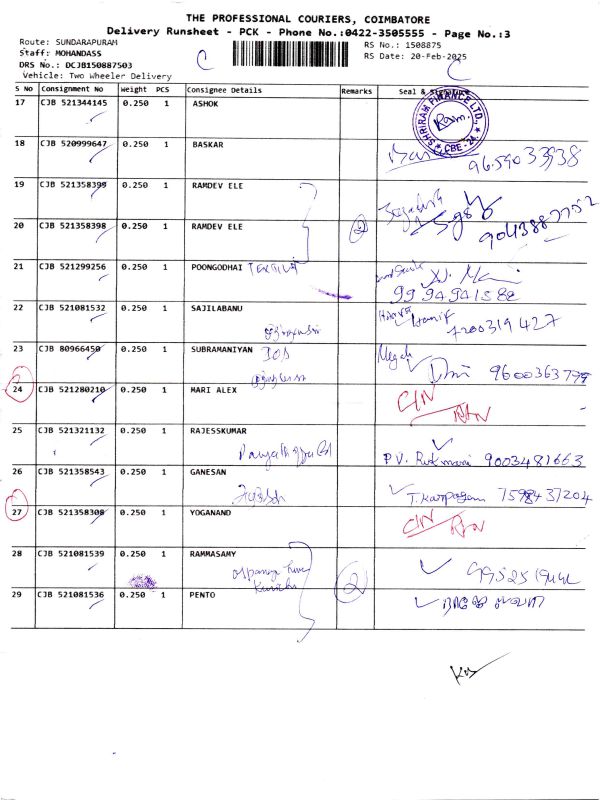 THE PROFESSIONAL COURIERS, COIMBATORE
Delivery Runsheet - PCK - Phone No.:0422-3505555 - Page No.:3
Route: SUNDARAPURAM
Staff: MOHANDASS
DRS No.: DCJB150887503
Vehicle: Two Wheeler Delivery
RS No.: 1508875
RS Date: 20-Feb-2025
C
C
S No Consignment No Weight PCS Consignee Details Remarks Seal & Signature
17 CJB 521344145 0.250 1 ASHOK
SHRIRAM FINANCE LTD.
CBE - 24.
18 CJB 520999647 0.250 1 BASKAR 9659033938
19 CJB 521358399 0.250 1 RAMDEV ELE
20 CJB 521358398 0.250 1 RAMDEV ELE 2 9043887752
21 CJB 521299256 0.250 1 POONGODHAI
9994941588
22 CJB 521081532 0.250 1 SAJILABANU Hanif 7200319427
23 CJB 80966450 0.250 1 SUBRAMANIYAN 9600363799
24 CJB 521280210 0.250 1 MARI ALEX
25 CJB 521321132 0.250 1 RAJESSKUMAR
P.V. Rukmani 9003481663
26 CJB 521358543 0.250 1 GANESAN
T. Karpagam 7598437204
27 CJB 521358308 0.250 1 YOGANAND
28 CJB 521081539 0.250 1 RAMMASAMY
2
29 CJB 521081536 0.250 1 PENTO